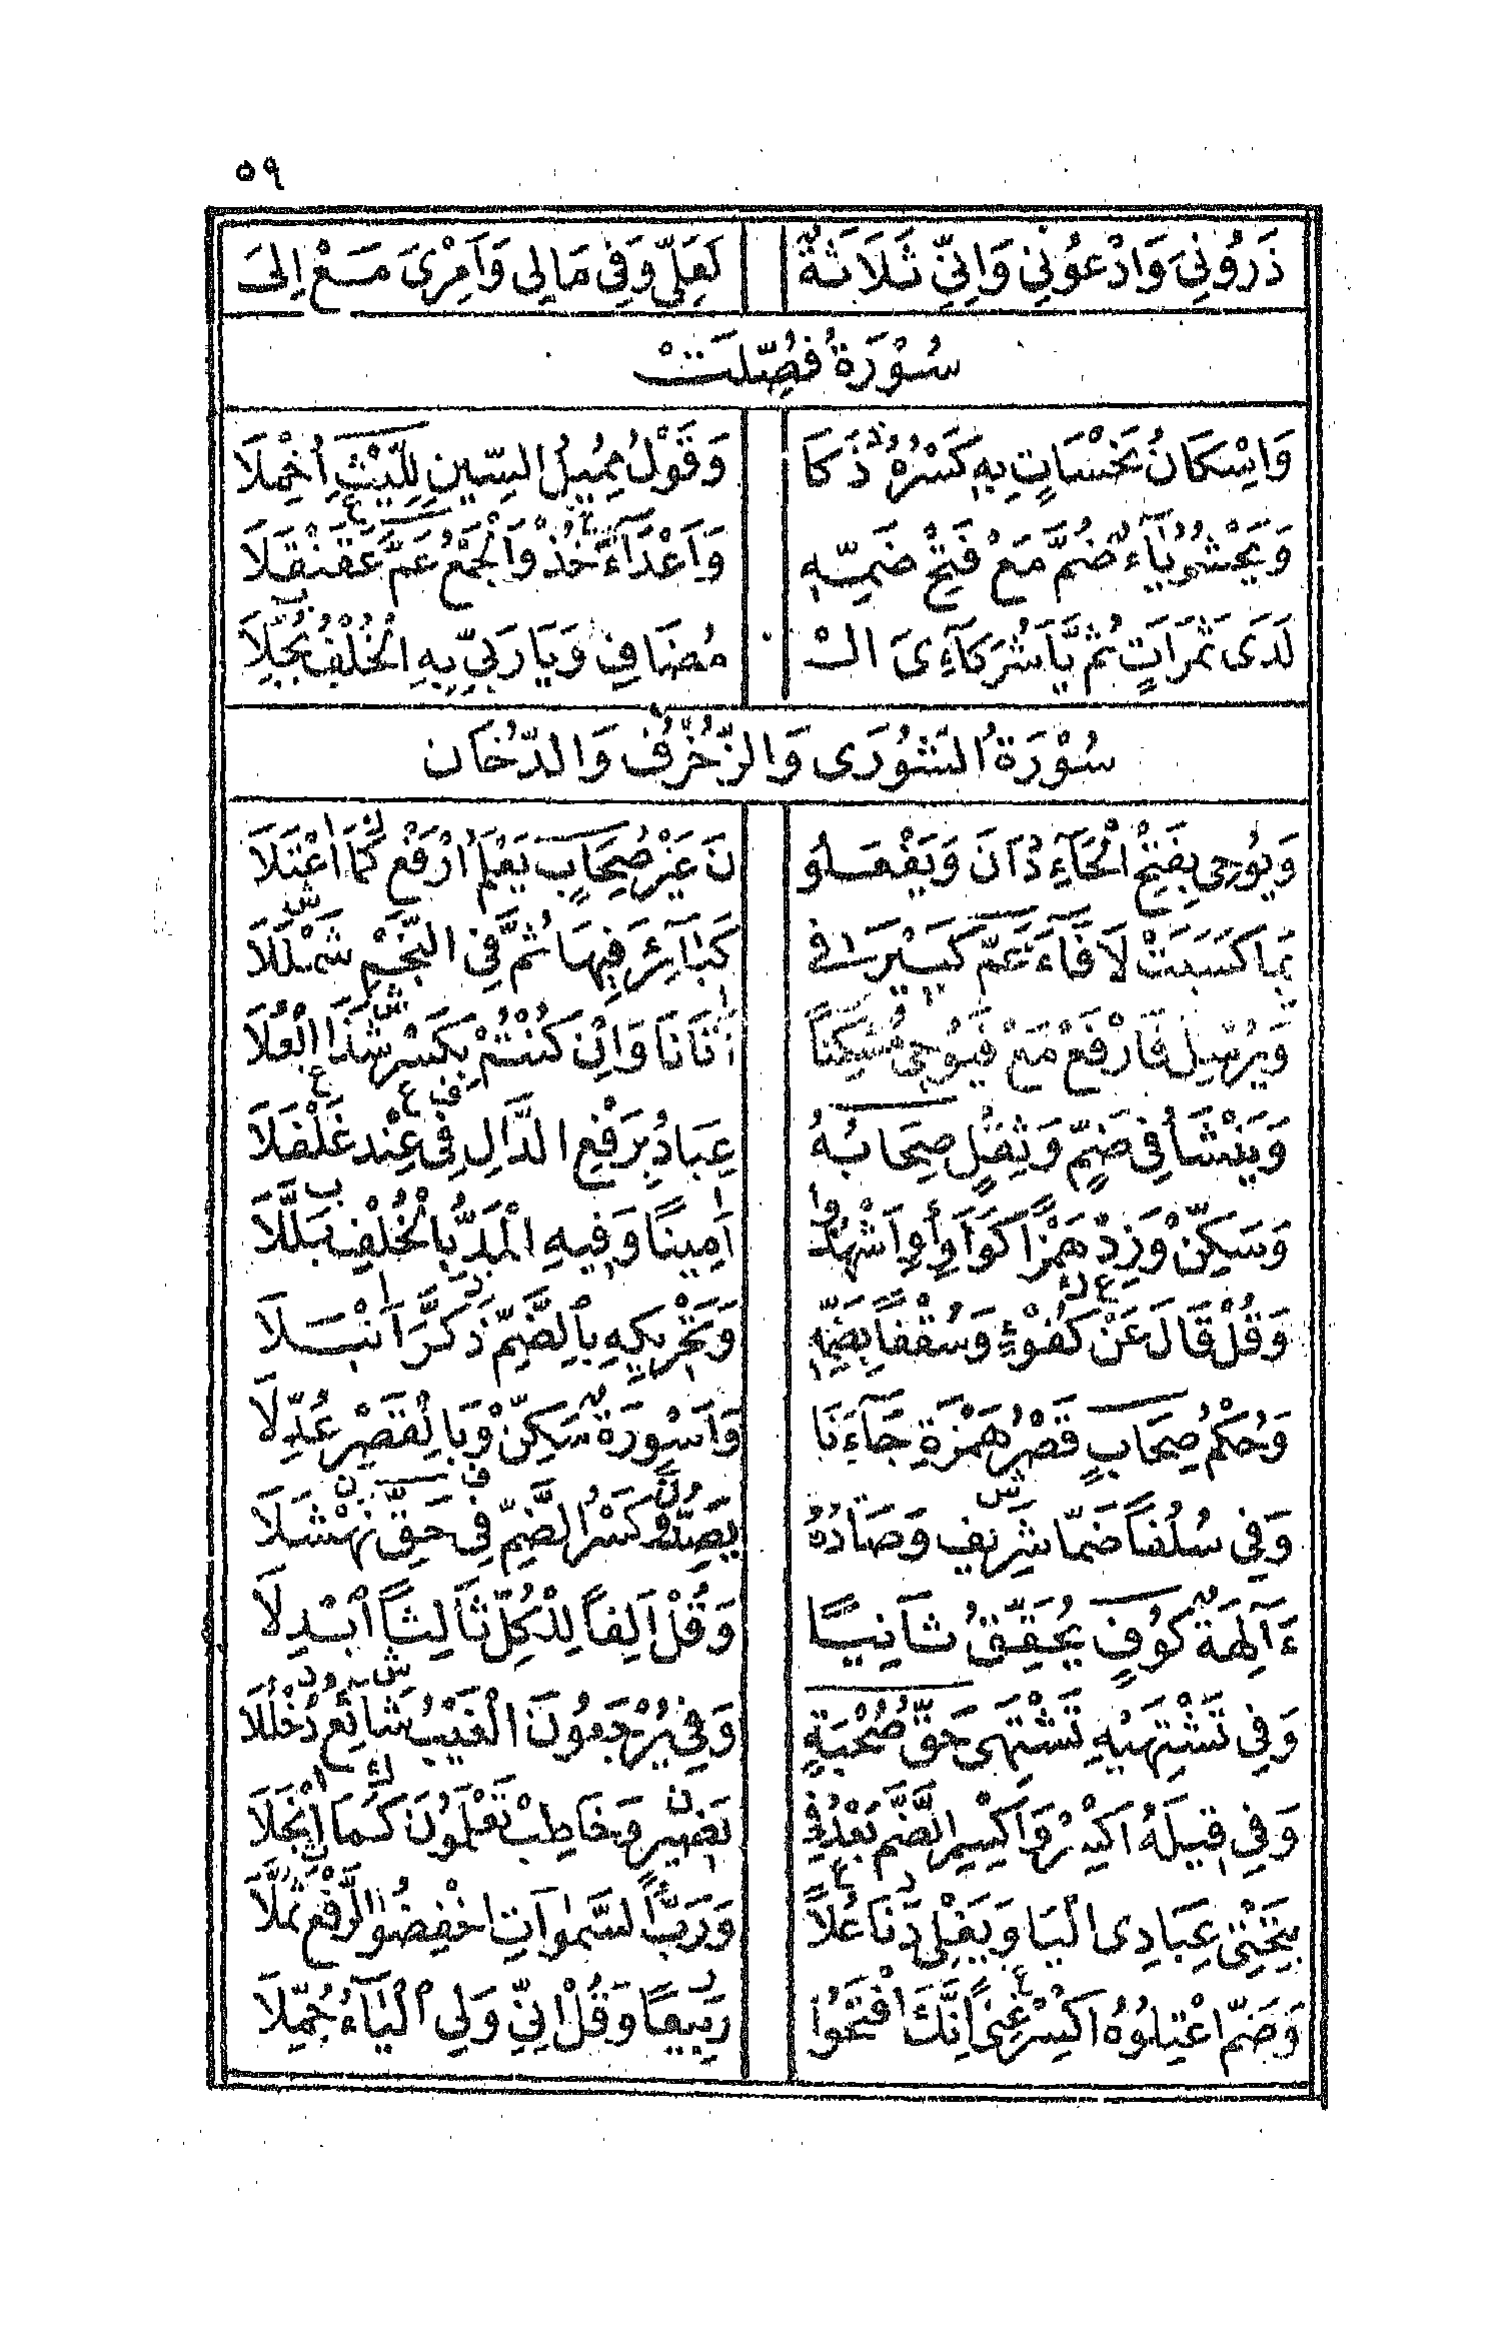 ٥٩
ذَرُونِيَ وَادْعُونِي وَإِنِّي ثَلَاثَةٌ لَعَلِّي وَفِي مَالِي وَأَمْرِيَ مَعْ إِلَىَ
سُوْرَةُ فُصِّلَتْ
وَإِسْكَانُ نَحْسَاتٍ بِهِ كَسْرُهُ ذَكَا وَقَوْلُ مُمِيلِ السِّينِ لِلَّيْثِ أُخْمِلَا
وَنَحْشُرُ يَآءٌ ضُمَّ مَعْ فَتْحِ ضَمِّهِ وَأَعْدَآءُ خُذْ وَالْجَمْعُ عَمَّ عَقَنْقَلَا
لَدَى ثَمَرَاتٍ ثُمَّ يَا شُرَكَآءِيَ الْ مُضَافِ وَيَا رَبِّي بِهِ الْخُلْفُ بُجِّلَا
سُوْرَةُ الشُوْرَى وَالزُّخْرُفِ وَالدُّخَان
وَيُوحَى بِفَتْحِ الْحَآءِ دَانَ وَيَفْعَلُو نَ غَيْرُ صِحَابٍ يَعْلَمَ ارْفَعْ كَمَا اعْتَلَا
بِمَا كَسَبَتْ لَا فَآءَ عَمَّ كَبِيْرَ فِي كَبَآئِرَ فِيهَا ثُمَّ فِي النَّجْمِ شَمْلَلَا
وَيُرْسِلَ فَارْفَعْ مَعْ فَيُوْحِي مُسَكِّنًا أَتَانَا وَإِنْ كُنْتُمْ بِكَسْرٍ شَذَا الْعُلَا
وَيَنْشَأُ فِي ضَمٍّ وَثِقْلٍ صِحَابُهُ عِبَادُ بِرَفْعِ الدَّالِ فِي عِنْدَ غَلْغَلَا
وَسَكِّنْ وَزِدْ هَمْزًا كَوَاوٍ أَؤُشْهِدُوا أَمِينًا وَفِيهِ الْمَدُّ بِالْخُلْفِ بَلَّلَا
وَقُلْ قَالَ عَنْ كُفْوٍ وَسُقْفًا بِضَمِّهِ وَتَحْرِيكِهِ بِالضَّمِّ ذَكَّرَ أَنْبَلَا
وَحُكْمُ صِحَابٍ قَصْرُ هَمْزَةِ جَآءَنَا وَأَسْوِرَةٌ سَكِّنْ وَبِالْقَصْرِ عُدِّلَا
وَفِي سُلُفًا ضَمَّا شَرِيفٍ وَصَادُهُ يَصِدُّونَ كَسْرُ الضَّمِّ فِي حَقِّ نَهْشَلَا
ءَآلِهَةٌ كُوْفٍ يُحَقِّقُ ثَانِيًا وَقُلْ أَلِفًا لِلْكُلِّ ثَالِثًا أُبْدِلَا
وَفِي تَشْتَهِيْهِ تَشْتَهِى حَقُّ صُحْبَةٍ وَفِي يُرْجَعُونَ الْغَيْبُ شَايَعَ دُخْلُلَا
وَفِي قِيلَهُ اكْسِرْ وَاكْسِرِ الضَّمَّ بَعْدُ فِي نَصِيرٍ وَخَاطِبْ تَعْلَمُونَ كَمَا انْجَلَا
بِتَحْتِي عِبَادِى الْيَا وَيَغْلِي دَنَا عُلًا وَرَبُّ السَّمٰوَاتِ اخْفِضُوا الرَّفْعَ ثُمَّلَا
وَضَمَّ اعْتِلُوهُ اكْسِرْ غِنًى إِنَّكَ افْتَحُوا رَبِيعًا وَقُلْ إِنِّي وَلِي الْيَآءُ حُمِّلَا